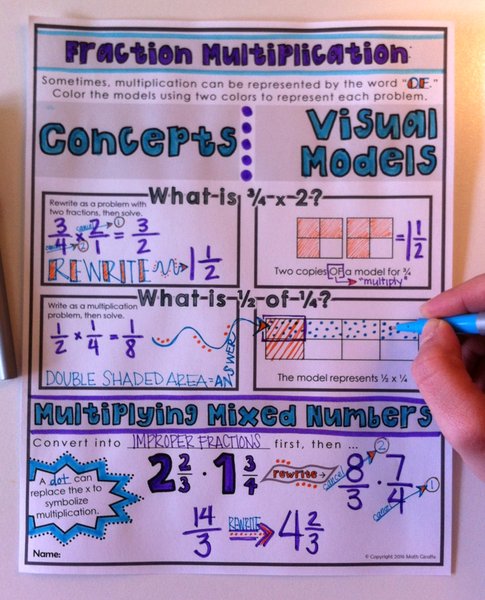 Fraction Multiplication
Sometimes, multiplication can be represented by the word "OF."
Color the models using two colors to represent each problem.
Concepts
Visual
Models
What is ¾ x 2?
Rewrite as a problem with
two fractions, then solve.
3/4 x 2/1 = 3/2
cancel 1
cancel 2
REWRITE 1 1/2
= 1 1/2
Two copies OF a model for ¾
"multiply"
What is ½ of ¼?
Write as a multiplication
problem, then solve.
1/2 x 1/4 = 1/8
DOUBLE SHADED AREA = ANSWER
The model represents ½ x ¼
Multiplying Mixed Numbers
Convert into IMPROPER FRACTIONS first, then ...
A dot can
replace the x to
symbolize
multiplication.
2 2/3 · 1 3/4 rewrite→ 8/3 · 7/4
cancel 2
cancel 1
14/3 REWRITE 4 2/3
Name:
© Copyright 2016 Math Giraffe